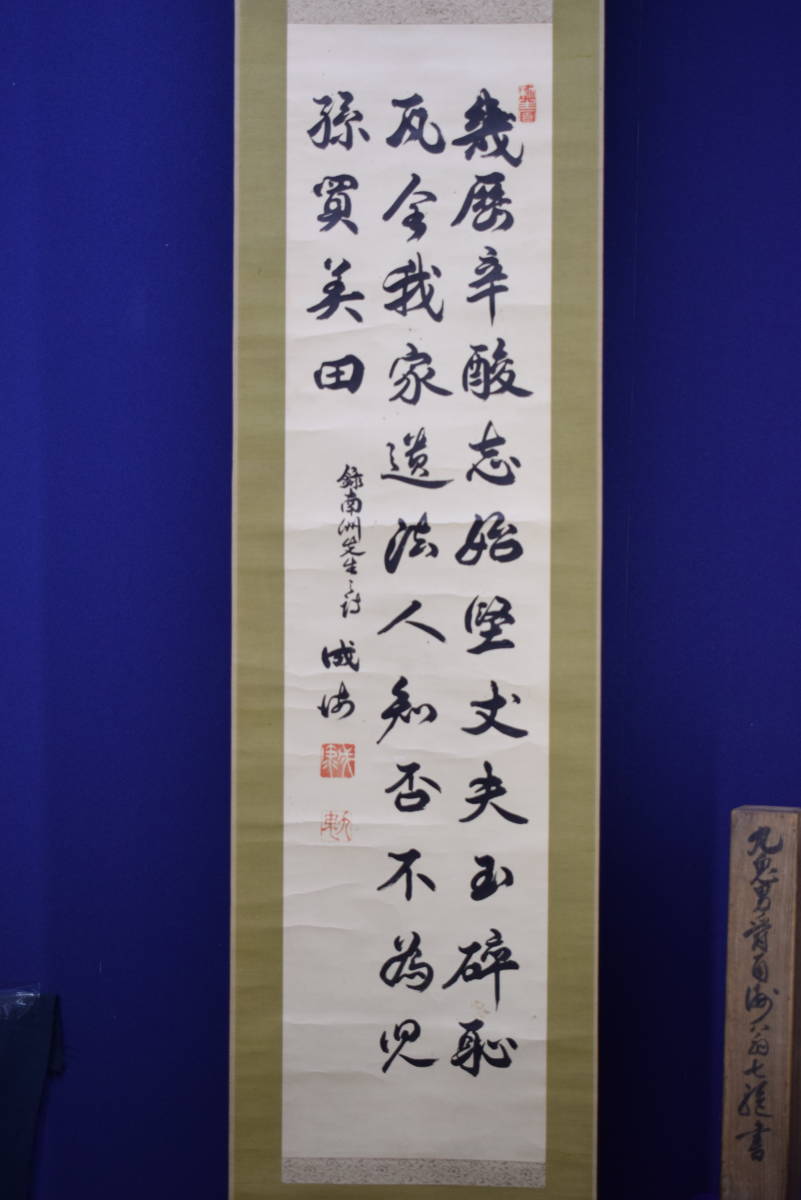 幾歴辛酸志始堅丈夫玉砕恥
瓦全我家遺法人知否不為児
孫買美田
録南洲先生之詩
成海
九鬼男爵自海公翁七絶書